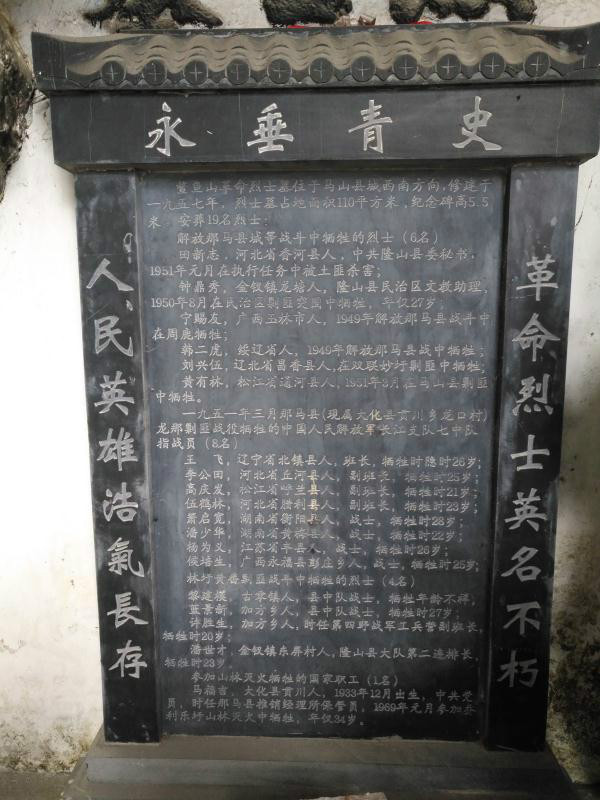 永垂青史
革命烈士英名不朽
鳖鱼山革命烈士墓位于马山县城西南方向，修建于
一九五七年，烈士墓占地面积110平方米，纪念碑高5.5
米，安葬19名烈士：
解放那马县城等战斗中牺牲的烈士（6名）
田新志，河北省香河县人，中共隆山县委秘书，
1951年元月在执行任务中被土匪杀害；
钟鼎秀，金钗镇龙塘人，隆山县民治区文教助理，
1950年8月在民治区剿匪突围中牺牲，年仅27岁；
宁赐友，广西玉林市人，1949年解放那马县战斗中
在周鹿牺牲；
韩二虎，绥辽省人，1949年解放那马县战中牺牲；
刘兴伍，辽北省昌香县人，在双联妙圩剿匪中牺牲；
黄有林，松江省通河县人，1951年3月在马山县剿匪
中牺牲。
一九五一年三月那马县（现属大化县贡川乡龙口村）
龙那剿匪战役牺牲的中国人民解放军长江支队七中队
指战员（8名）
王飞，辽宁省北镇县人，班长，牺牲时隐时26岁；
李公田，河北省丘河县人，副班长，牺牲时25岁；
高庆发，松江省呼兰县人，副班长，牺牲时21岁；
伍鹤林，河北省腾利县人，副班长，牺牲时23岁；
萧启宽，湖南省衡阳县人，战士，牺牲时28岁；
潘少华，湖南省黄梅县人，战士，牺牲时22岁；
杨为义，江苏省丰县人，战士，牺牲时26岁；
侯培生，广西永福县彭庄乡人，战士，牺牲时25岁；
林圩黄番剿匪战斗中牺牲的烈士（4名）
黎建模，古零镇人，县中队战士，牺牲年龄不祥；
蓝景新，加方乡人，县中队战士，牺牲时27岁；
许胜生，加方乡人，时任第四野战军工兵营副班长，
牺牲时20岁；
潘世才，金钗镇东屏村人，隆山县大队第二连排长，
牺牲时23岁。
参加山林灭火牺牲的国家职工（1名）
马福吉，大化县贡川人，1933年12月出生，中共党
员，时任那马县推销经理所保管员，1969年元月参加乔
利乐圩山林灭火中牺牲，年仅34岁。
人民英雄浩氣長存